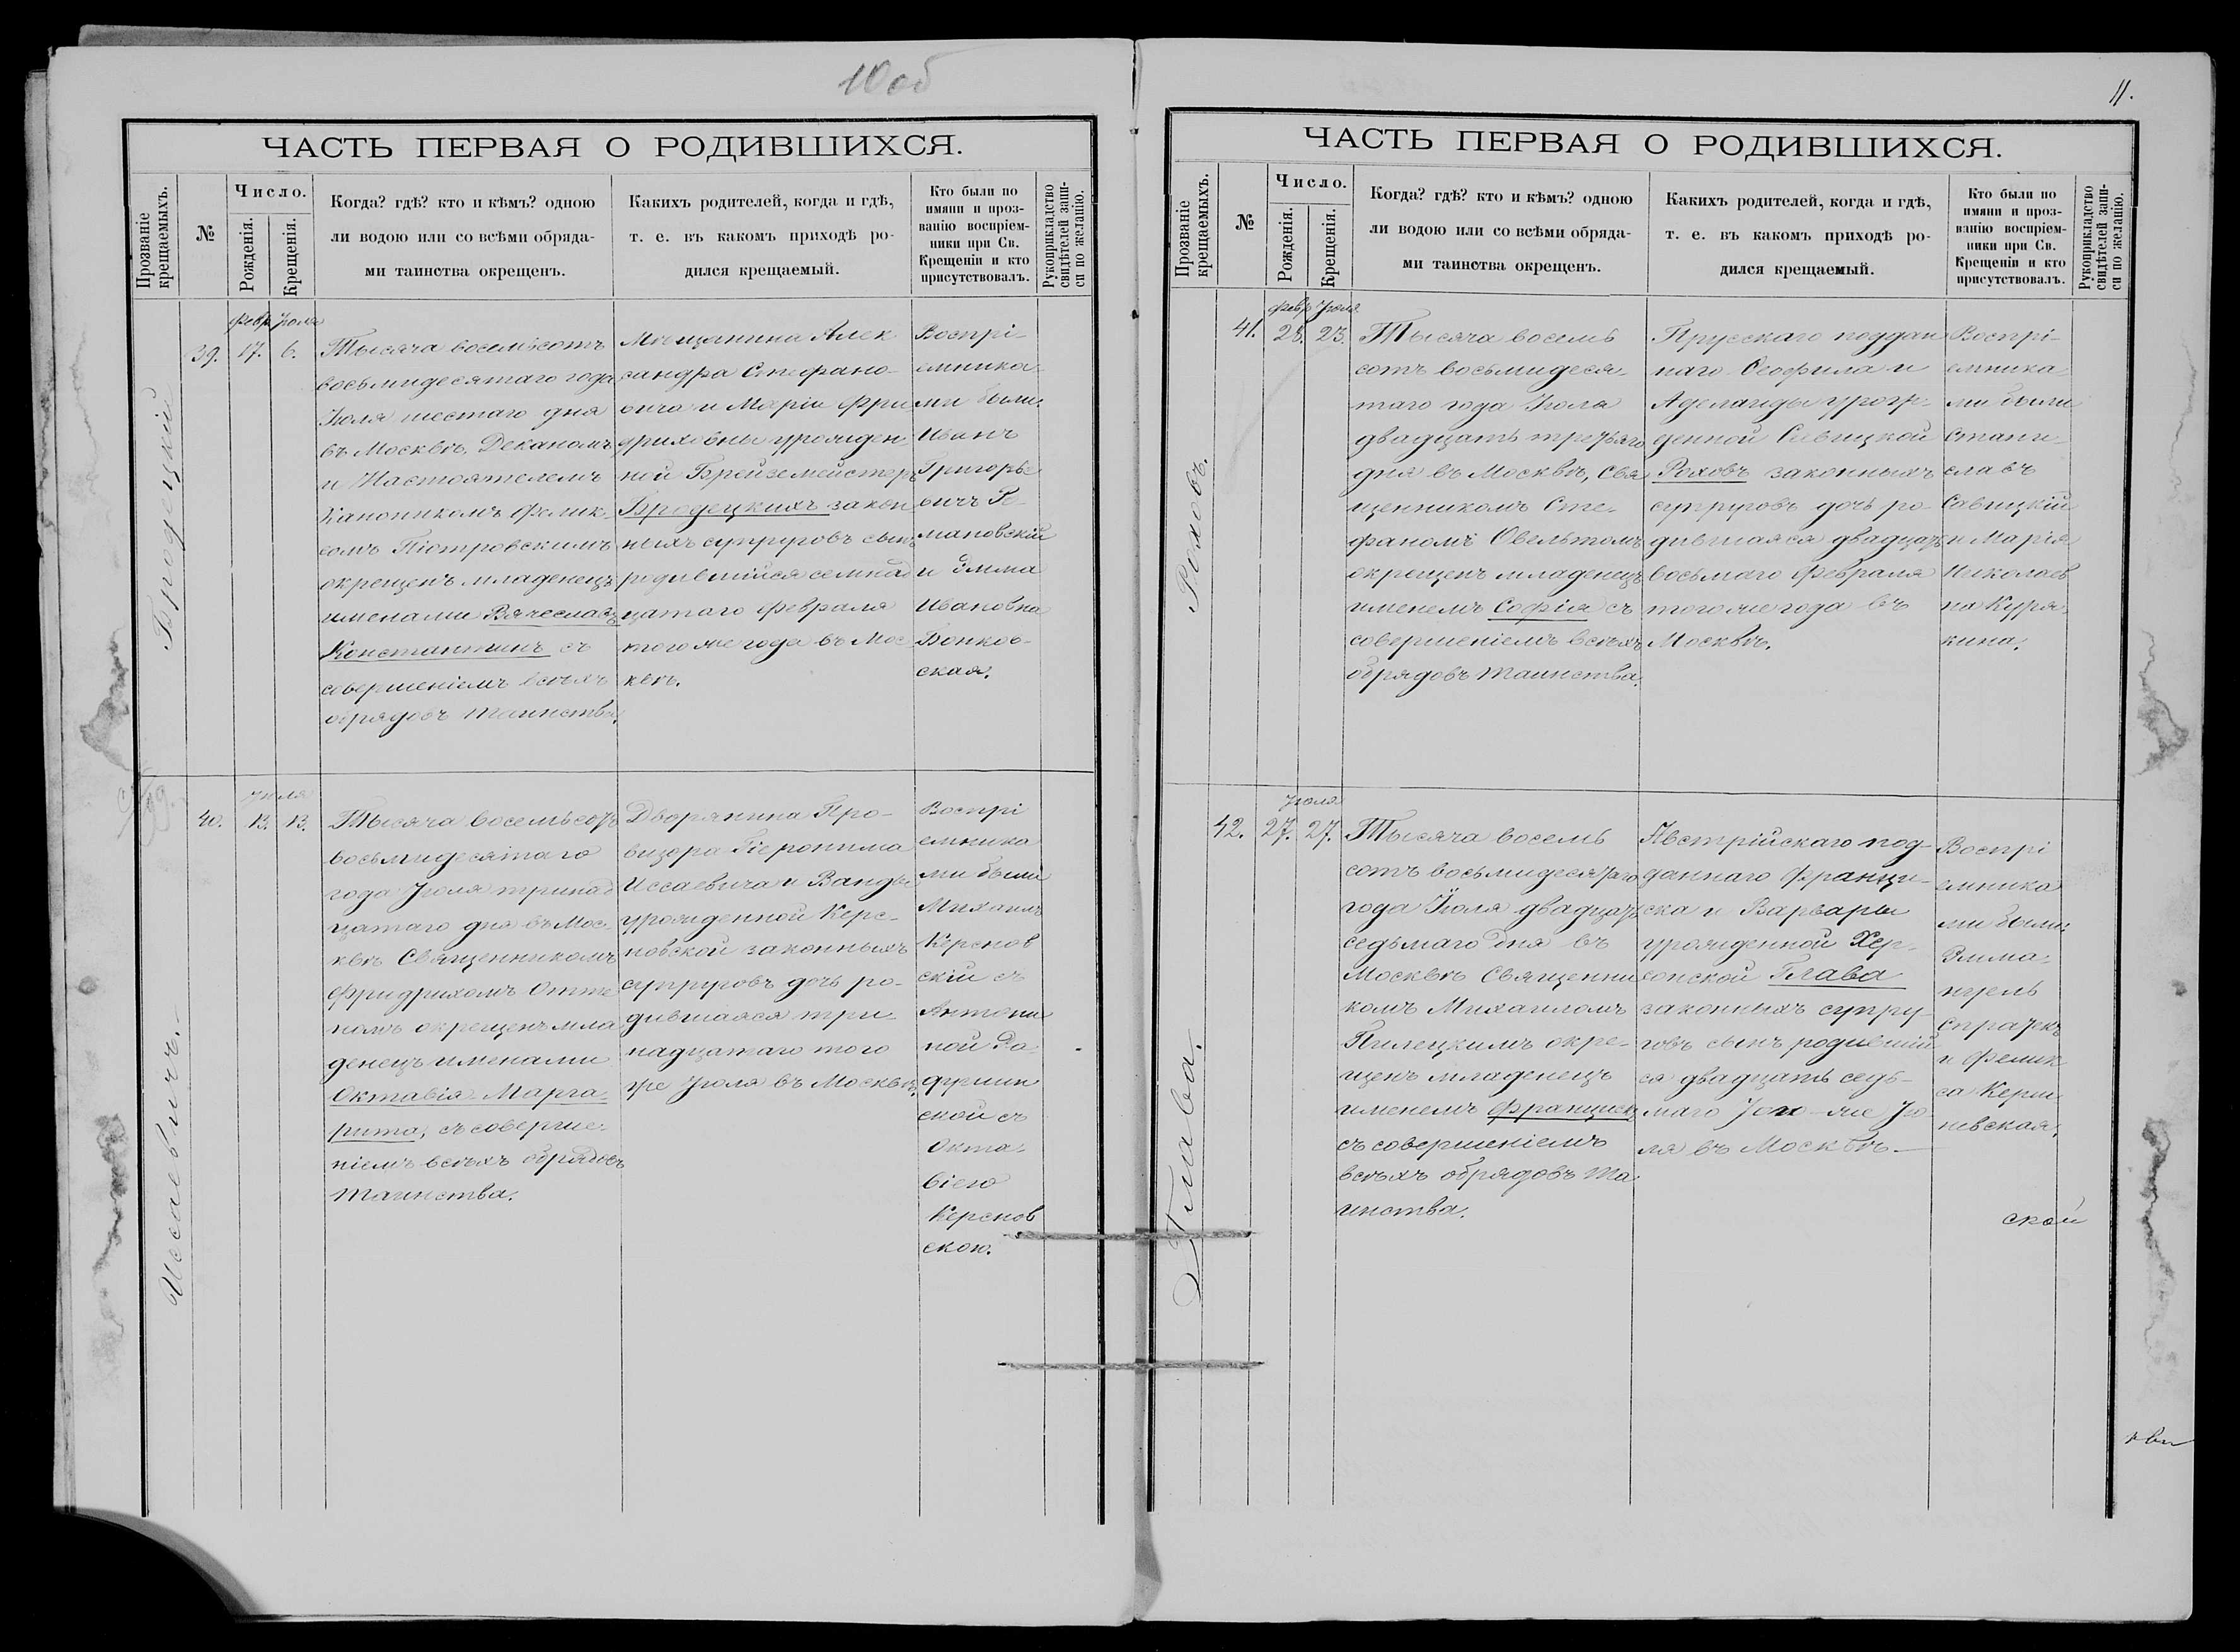 10 об
ЧАСТЬ ПЕРВАЯ О РОДИВШИХСЯ.
Прозваніе крещаемыхъ.
№
Число.
Рожденія.
Крещенія.
Когда? гдѣ? кто и кѣмъ? одною
ли водою или со всѣми обряда-
ми таинства окрещенъ.
Какихъ родителей, когда и гдѣ,
т. е. въ какомъ приходѣ ро-
дился крещаемый.
Кто были по
имяни и проз-
ванію воспріем-
ники при Св.
Крещеніи и кто
присутствовалъ.
Рукоприкладство
свидѣтелей запи-
си по желанію.
Бродецкій
39.
Февр. Іюля
17. 6.
Тысяча восемьсотъ
восьмидесятаго года
Іюля шестаго дня
въ Москвѣ, Деканомъ
и Настоятелемъ
Каноникомъ Фелик-
сомъ Піотровскимъ
окрещенъ младенецъ
именами Вячеславъ
Константинъ съ
совершеніемъ всѣхъ
обрядовъ таинства.
Мѣщанина Алек
сандра Стефано-
вича и Маріи Фри
дриховны урожден
ной Брейземейстеръ
Бродецкихъ закон
ныхъ супруговъ сынъ
родившійся семнад
цатаго Февраля
тогоже года въ Мос
квѣ.
Воспрі-
емника-
ми были:
Иванъ
Григорье
вичъ Ге-
мановскій
и Эмма
Ивановна
Бонков-
ская.
Иссаевичъ.-
40.
Іюля
13. 13.
Тысяча восемьсотъ
восьмидесятаго
года Іюля тринад
цатаго дня въ Мос-
квѣ Священникомъ
Фридрихомъ Отте
номъ окрещенъ мла
денецъ именами
Октавія Марга-
рита, съ соверше-
ніемъ всѣхъ обрядовъ
таинства.
Дворянина Про-
визора Іеронима
Иссаевича и Ванды
урожденной Керс-
новской законныхъ
супруговъ дочь ро-
дившаяся три-
надцатаго того
же Іюля въ Москвѣ.
Воспрі
емника
ми были
Михаилъ
Керснов
скій съ
Антони
ной
скои съ
Окта-
віею
Керснов
скою.
11.
ЧАСТЬ ПЕРВАЯ О РОДИВШИХСЯ.
Прозваніе крещаемыхъ.
№
Число.
Рожденія.
Крещенія.
Когда? гдѣ? кто и кѣмъ? одною
ли водою или со всѣми обряда-
ми таинства окрещенъ.
Какихъ родителей, когда и гдѣ,
т. е. въ какомъ приходѣ ро-
дился крещаемый.
Кто были по
имяни и проз-
ванію воспріем-
ники при Св.
Крещеніи и кто
присутствовалъ.
Рукоприкладство
свидѣтелей запи-
си по желанію.
Роховъ.
41.
Февр. Іюля
28. 23.
Тысяча восемь
сотъ восьмидеся-
таго года Іюля
двадцать третьяго
дня въ Москвѣ, Свя
щенникомъ Сте-
фаномъ Овельтомъ
окрещенъ младенецъ
именемъ Софія съ
совершеніемъ всѣхъ
обрядовъ таинства.
Прусскаго поддан
наго Ѳеофила и
Аделаиды урож-
денной Савицкой
Роховъ законныхъ
супруговъ дочь ро-
дившаяся двадцать
восьмаго Февраля
тогоже года въ
Москвѣ.
Воспрі-
емника-
ми были
Стани-
славъ
Савицкій
и Марія
Николаев
на Куря-
кина.
Глава.
42.
Іюля
27. 27.
Тысяча восемь
сотъ восьмидесятаго
года Іюля двадцать
седьмаго дня въ
Москвѣ Священни
комъ Михаиломъ
Пилецкимъ окре-
щенъ младенецъ
именемъ Францискъ
съ совершеніемъ
всѣхъ обрядовъ та-
инства.
Австрійскаго под-
даннаго Франци-
ска и Варвары
урожденной Хер-
сонской Глава
законныхъ супру-
говъ сынъ родившій
ся двадцать седь-
маго того-же Ію
ля въ Москвѣ.-
Воспрі
емника
ми были:
Эмма-
нуель
и Феликс
са Керш-
невская.
ской